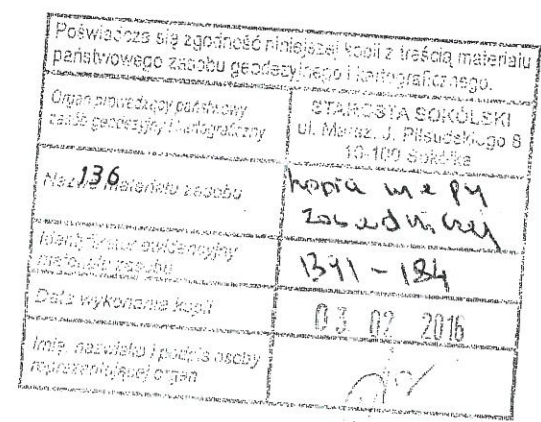 Poświadcza się zgodność niniejszej kopii z treścią materiału
państwowego zasobu geodezyjnego i kartograficznego.
Organ prowadzący państwowy
zasób geodezyjny i kartograficzny
STAROSTA SOKÓLSKI
ul. Marsz. J. Piłsudskiego 8
16-100 Sokółka
136
Nazwa materiału zasobu
kopia mapy
zasadniczej
Identyfikator ewidencyjny
materiału zasobu
1391-184
Data wykonania kopii
03 02 2016
Imię, nazwisko i podpis osoby
reprezentującej organ